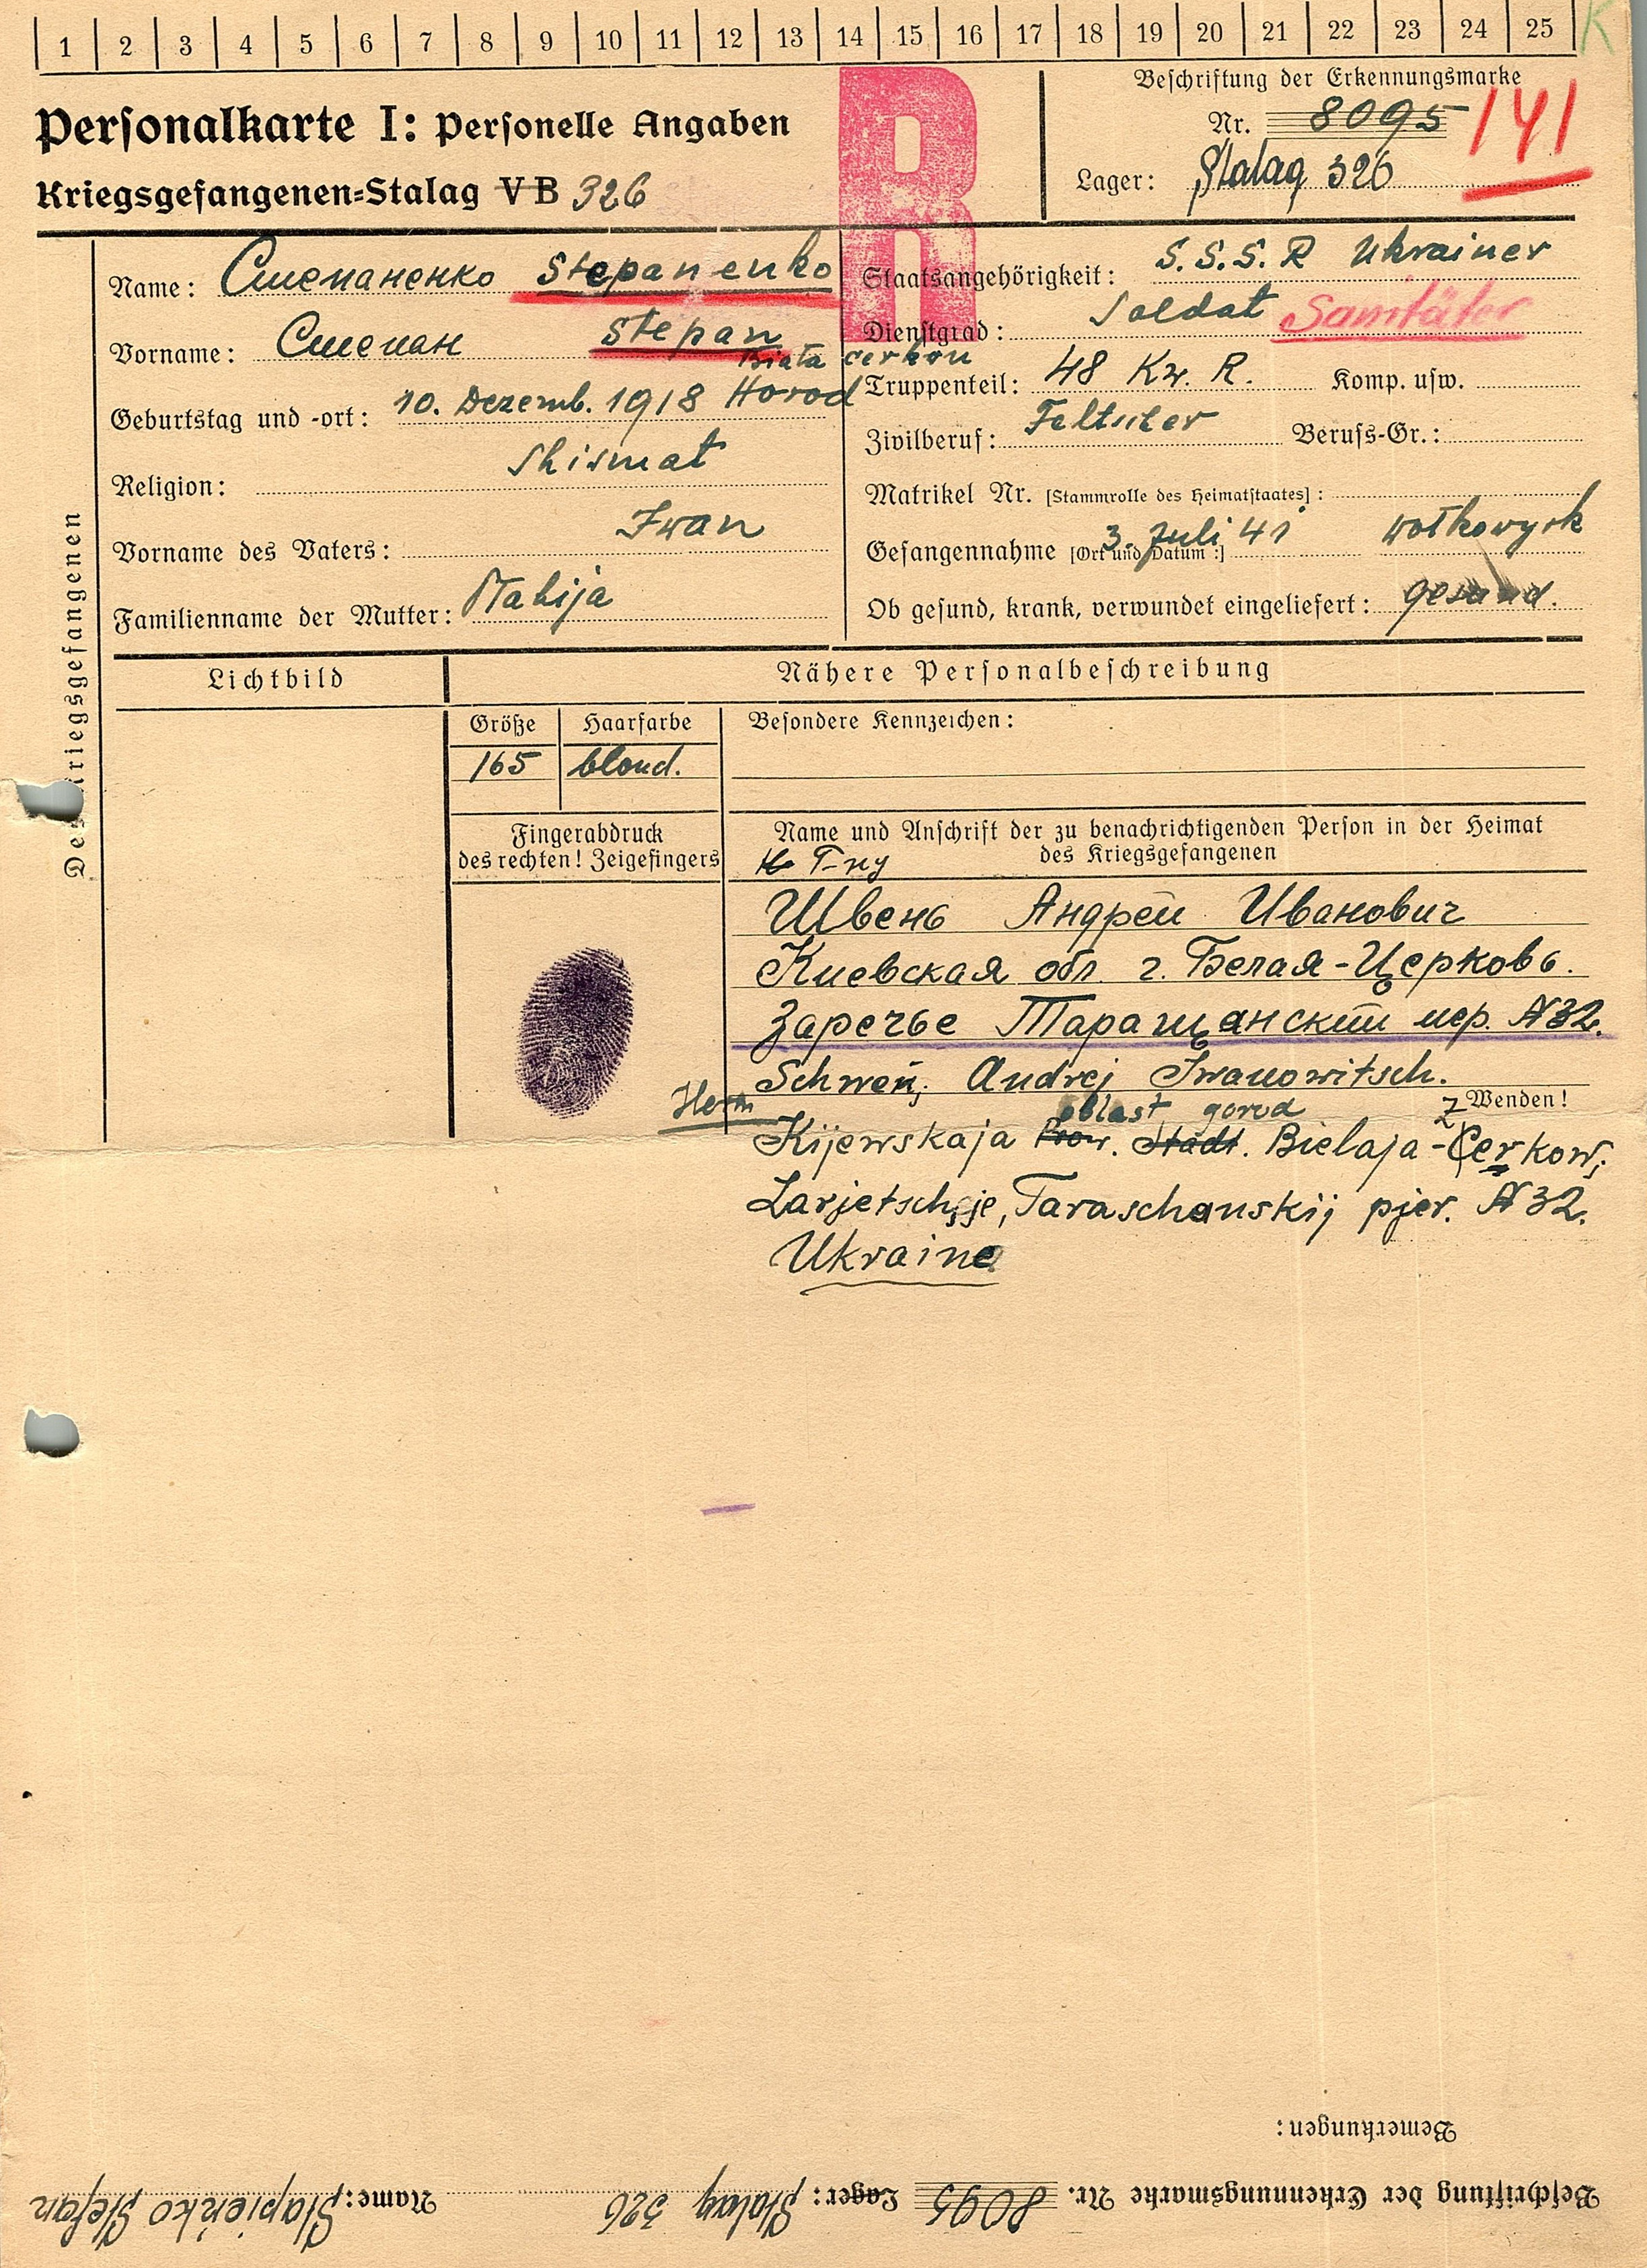 1 2 3 4 5 6 7 8 9 10 11 12 13 14 15 16 17 18 19 20 21 22 23 24 25 K
Personalkarte I: Personelle Angaben
Kriegsgefangenen-Stalag V B 326
R
Beschriftung der Erkennungsmarke
Nr. 8095 141
Lager: Stalag 326
Des Kriegsgefangenen
Name: Степаненко Stepanenko
Vorname: Степан Stepan
Biała cerkou
Geburtstag und -ort: 10. Dezemb. 1918 Horod
Religion: Shismat
Vorname des Vaters: Iwan
Familienname der Mutter:
Staatsangehörigkeit: S.S.S.R Ukrainer
Dienstgrad: Soldat Sanitäter
Truppenteil: 48 Kw. R. Komp. usw.
Zivilberuf: Feltscher Berufs-Gr.:
Matrikel Nr. [Stammrolle des Heimatstaates]:
Gefangennahme [Ort und Datum:] 3. Juli 41 Wołkowysk
Ob gesund, krank, verwundet eingeliefert: gesund.
Lichtbild
Nähere Personalbeschreibung
Größe Haarfarbe Besondere Kennzeichen:
165 blond.
Fingerabdruck
des rechten! Zeigefingers
Name und Anschrift der zu benachrichtigenden Person in der Heimat
des Kriegsgefangenen
Т-ну
Швень Андрей Иванович
Киевская обл. г. Белая-Церковь.
Заречье Таращанский пер. N 32.
Schweń, Andrej Iwanowitsch.
Wenden!
Herrn
oblast gorod Z
Kijewskaja Prow. Stadt. Bielaja-Cerkow,
Zarjetschje, Taraschanskij pjer. N 32.
Ukraine
Bemerkungen:
Beschriftung der Erkennungsmarke Nr. 8095 Lager: Stalag 326 Name: Stapieńko Stefan